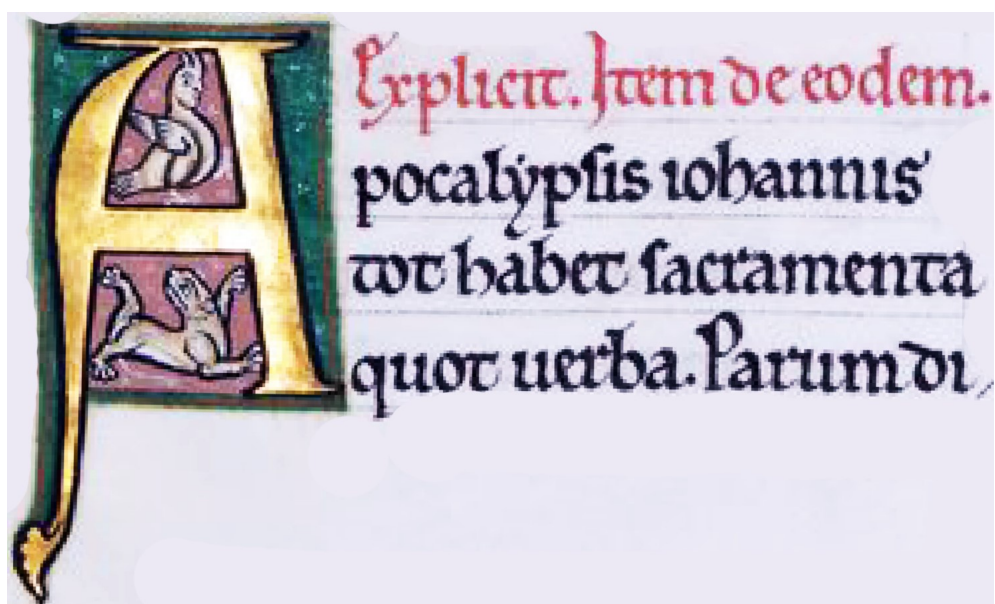 Explicit. Item de eodem.
Apocalẏpsis iohannis
tot habet sacramenta
quot uerba. Parum di